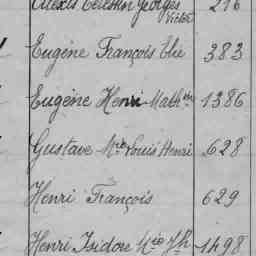 Alexis Célestin Georges 216
Victor
Eugène François Elie 383
Eugène Henri Math.in 1386
Gustave M.ie Louis Henri 628
Henri François 629
Henri Isidore M.ie J.h 1498